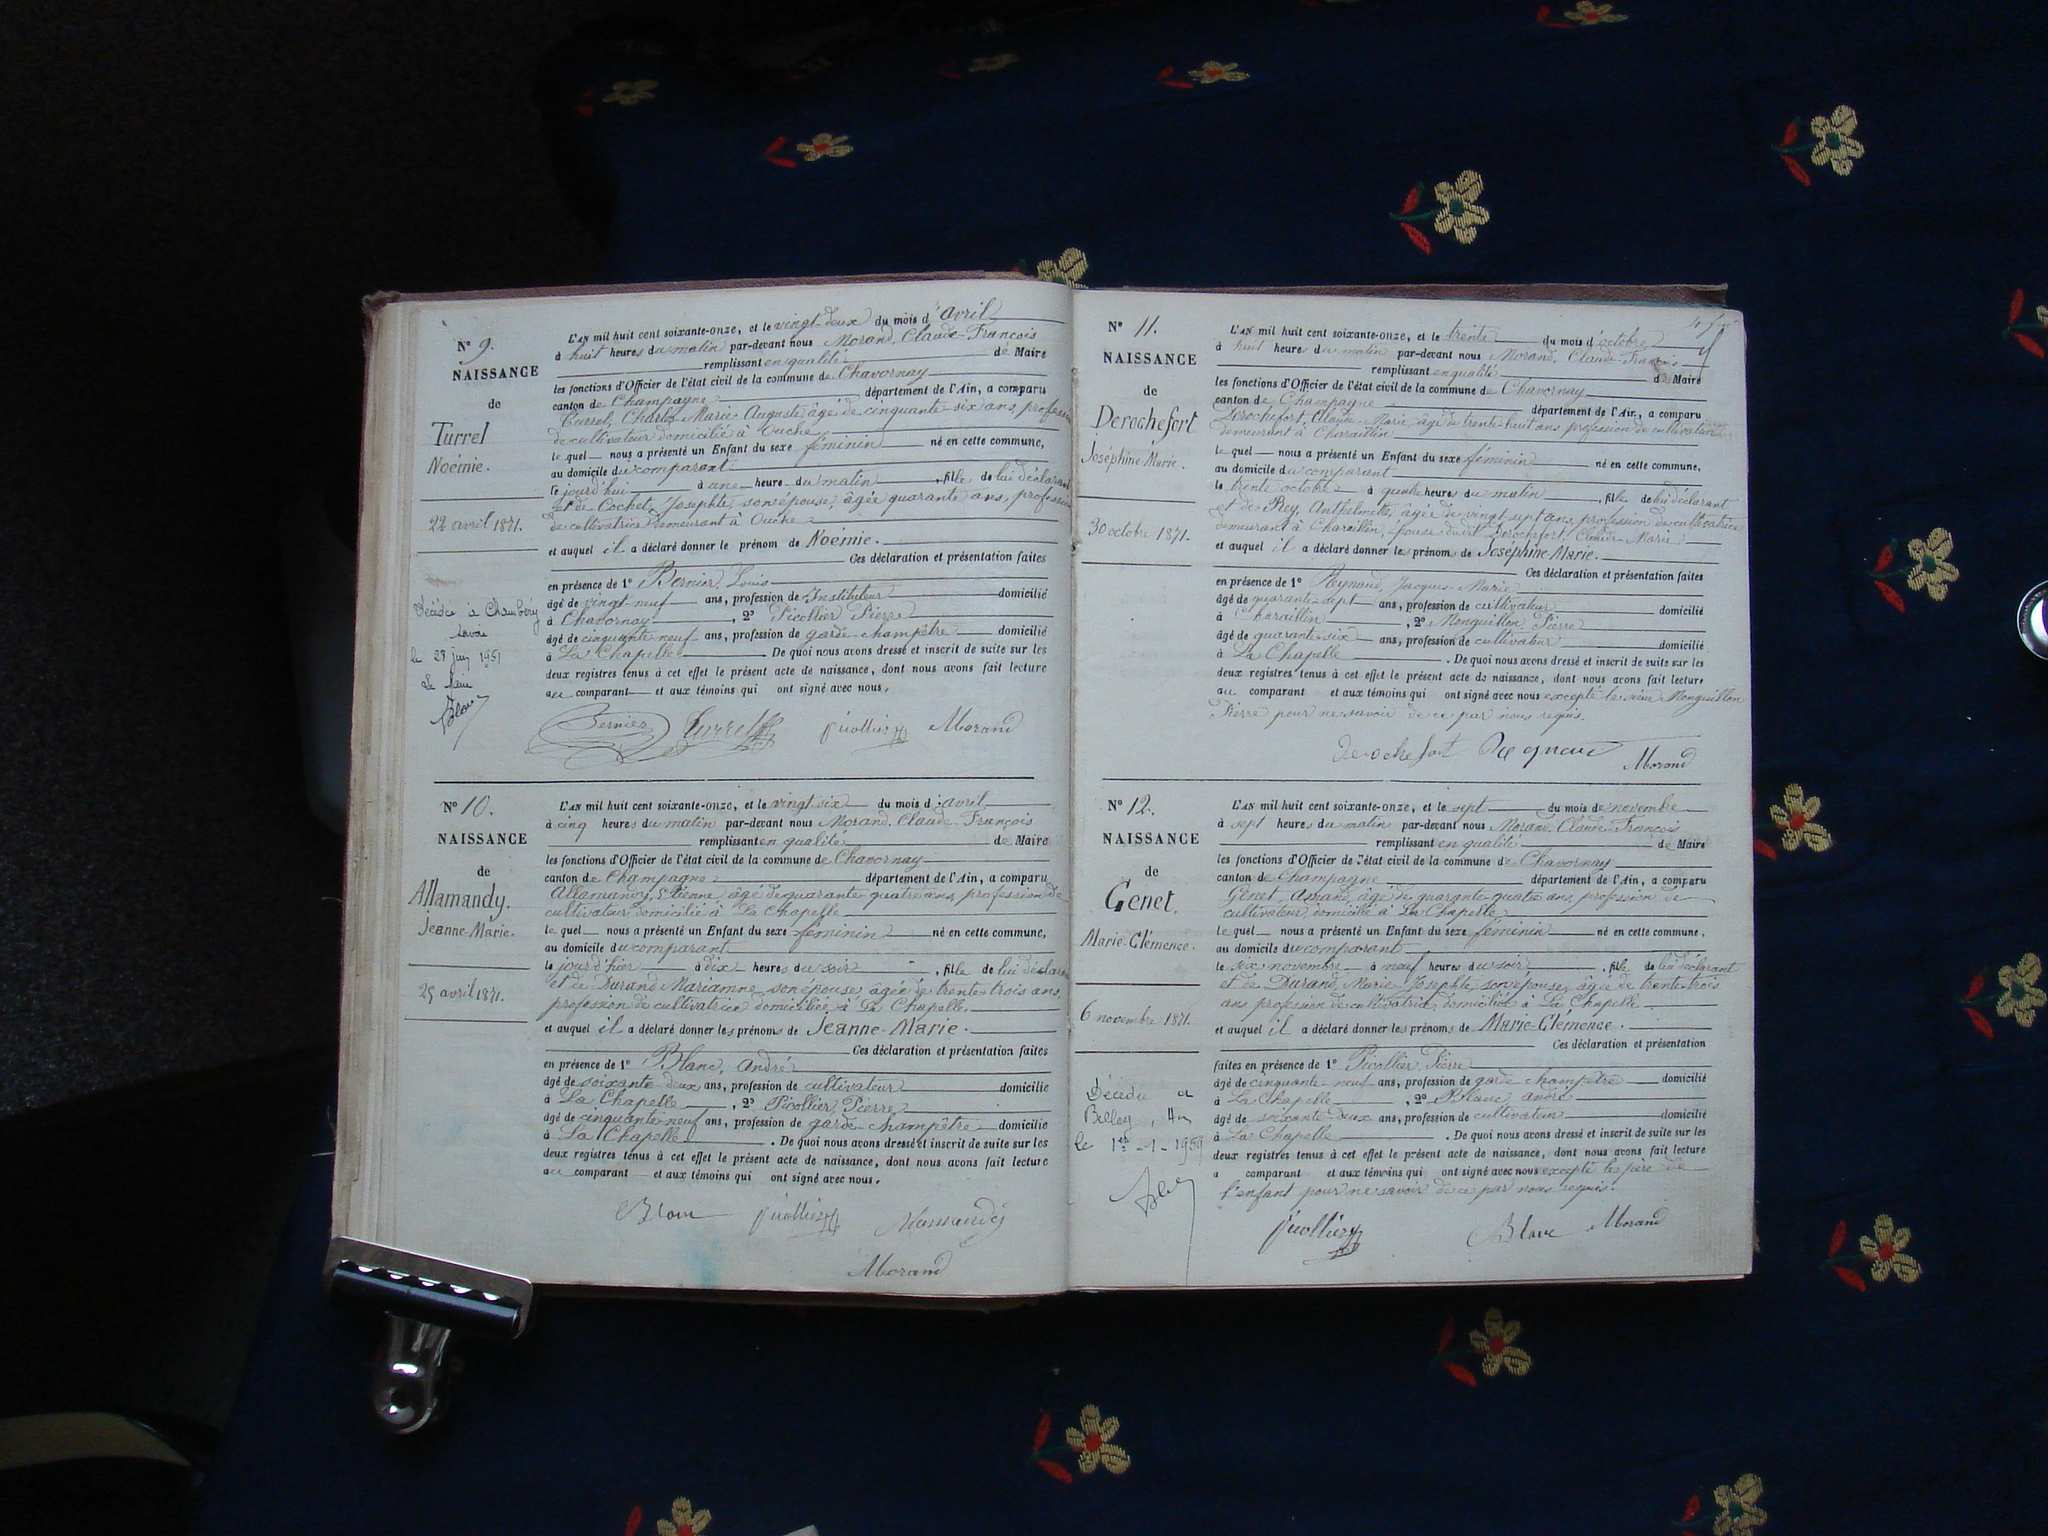 N° 9.
NAISSANCE
de
Turrel
Noémie.
22 avril 1871.
Décédée à Chambéry
Savoie
le 28 juin 1951
Le Maire
L'AN mil huit cent soixante-onze, et le vingt-deux du mois d'avril
à huit heures du matin par-devant nous Morand, Claude-François
remplissant en qualité de Maire
les fonctions d'Officier de l'état civil de la commune de Chavornay
canton de Champagne département de l'Ain, a comparu
Turrel, Charles Marie Auguste âgé de cinquante six ans, profession
de cultivateur domicilié à Ouche
le quel nous a présenté un Enfant du sexe féminin né en cette commune,
au domicile du comparant
le jourd'hui à une heure du matin, fille de lui déclarant
et de Cochet, Josephte, son épouse, âgée quarante ans, profession
de cultivatrice demeurant à Ouche
et auquel il a déclaré donner le prénom de Noémie.
Ces déclaration et présentation faites
en présence de 1° Bernier, Louis
âgé de vingt-neuf ans, profession de Instituteur domicilié
à Chavornay, 2° Picollier Pierre
âgé de cinquante neuf ans, profession de garde-champêtre domicilié
à La Chapelle. De quoi nous avons dressé et inscrit de suite sur les
deux registres tenus à cet effet le présent acte de naissance, dont nous avons fait lecture
au comparant et aux témoins qui ont signé avec nous.
Bernier Turrel Picollier Morand
N° 10.
NAISSANCE
de
Allamandy.
Jeanne-Marie.
25 avril 1871.
L'AN mil huit cent soixante-onze, et le vingt six du mois d'avril
à cinq heures du matin par-devant nous Morand, Claude-François
remplissant en qualité de Maire
les fonctions d'Officier de l'état civil de la commune de Chavornay
canton de Champagne département de l'Ain, a comparu
Allamandy, Etienne âgé de quarante quatre ans, profession de
cultivateur domicilié à La Chapelle
le quel nous a présenté un Enfant du sexe féminin né en cette commune,
au domicile du comparant
le jourd'hier à dix heures du soir, fille de lui déclarant
et de Durand Marianne son épouse âgée de trente-trois ans,
profession de cultivatrice domiciliée à La Chapelle.
et auquel il a déclaré donner les prénoms de Jeanne-Marie.
Ces déclaration et présentation faites
en présence de 1° Blanc, André
âgé de soixante-deux ans, profession de cultivateur domicilié
à La Chapelle, 2° Picollier, Pierre
âgé de cinquante-neuf ans, profession de garde-champêtre domicilié
à La Chapelle. De quoi nous avons dressé et inscrit de suite sur les
deux registres tenus à cet effet le présent acte de naissance, dont nous avons fait lecture
au comparant et aux témoins qui ont signé avec nous.
Blanc Picollier Allamandy
Morand
N° 11.
NAISSANCE
de
Derochefort
Joséphine-Marie.
30 octobre 1871.
L'AN mil huit cent soixante-onze, et le trente du mois d'octobre
à huit heures du matin par-devant nous Morand, Claude-François
remplissant en qualité de Maire
les fonctions d'Officier de l'état civil de la commune de Chavornay
canton de Champagne département de l'Ain, a comparu
Derochefort, Claude-Marie, âgé de trente huit ans profession de cultivateur
demeurant à Charaillin
le quel nous a présenté un Enfant du sexe féminin né en cette commune,
au domicile du comparant
le trente octobre à quatre heures du matin, fille de lui déclarant
et de Rey, Anthelmette, âgée de vingt sept ans, profession de cultivatrice
demeurant à Charaillin, épouse du dit Derochefort, Claude-Marie
et auquel il a déclaré donner les prénoms de Joséphine Marie.
Ces déclaration et présentation faites
en présence de 1° Reynaud, Jacques-Marie
âgé de quarante-sept ans, profession de cultivateur domicilié
à Charaillin, 2° Monguillon, Pierre
âgé de quarante-six ans, profession de cultivateur domicilié
à La Chapelle. De quoi nous avons dressé et inscrit de suite sur les
deux registres tenus à cet effet le présent acte de naissance, dont nous avons fait lecture
au comparant et aux témoins qui ont signé avec nous excepté le sieur Monguillon
Pierre pour ne savoir de ce par nous requis.
derochefort Reynaud Morand
N° 12.
NAISSANCE
de
Genet.
Marie-Clémence.
6 novembre 1871.
Décédée à
Belley, Ain
le 1er-1-1959
L'AN mil huit cent soixante-onze, et le sept du mois de novembre
à sept heures du matin par-devant nous Morand, Claude-François
remplissant en qualité de Maire
les fonctions d'Officier de l'état civil de la commune de Chavornay
canton de Champagne département de l'Ain, a comparu
Genet, Amand, âgé de quarante quatre ans, profession de
cultivateur, domicilié à La Chapelle
le quel nous a présenté un Enfant du sexe féminin né en cette commune,
au domicile du comparant
le six novembre à neuf heures du soir, fille de lui déclarant
et de Durand, Marie-Josephte, son épouse, âgée de trente-trois
ans profession de cultivatrice domiciliée à La Chapelle
et auquel il a déclaré donner les prénoms de Marie-Clémence.
Ces déclaration et présentation
faites en présence de 1° Picollier, Pierre
âgé de cinquante-neuf ans, profession de garde-champêtre domicilié
à La Chapelle, 2° Blanc, André
âgé de soixante-deux ans, profession de cultivateur domicilié
à La Chapelle. De quoi nous avons dressé et inscrit de suite sur les
deux registres tenus à cet effet le présent acte de naissance, dont nous avons fait lecture
a comparant et aux témoins qui ont signé avec nous excepté les père de
l'enfant pour ne savoir de ce par nous requis.
Picollier Blanc Morand